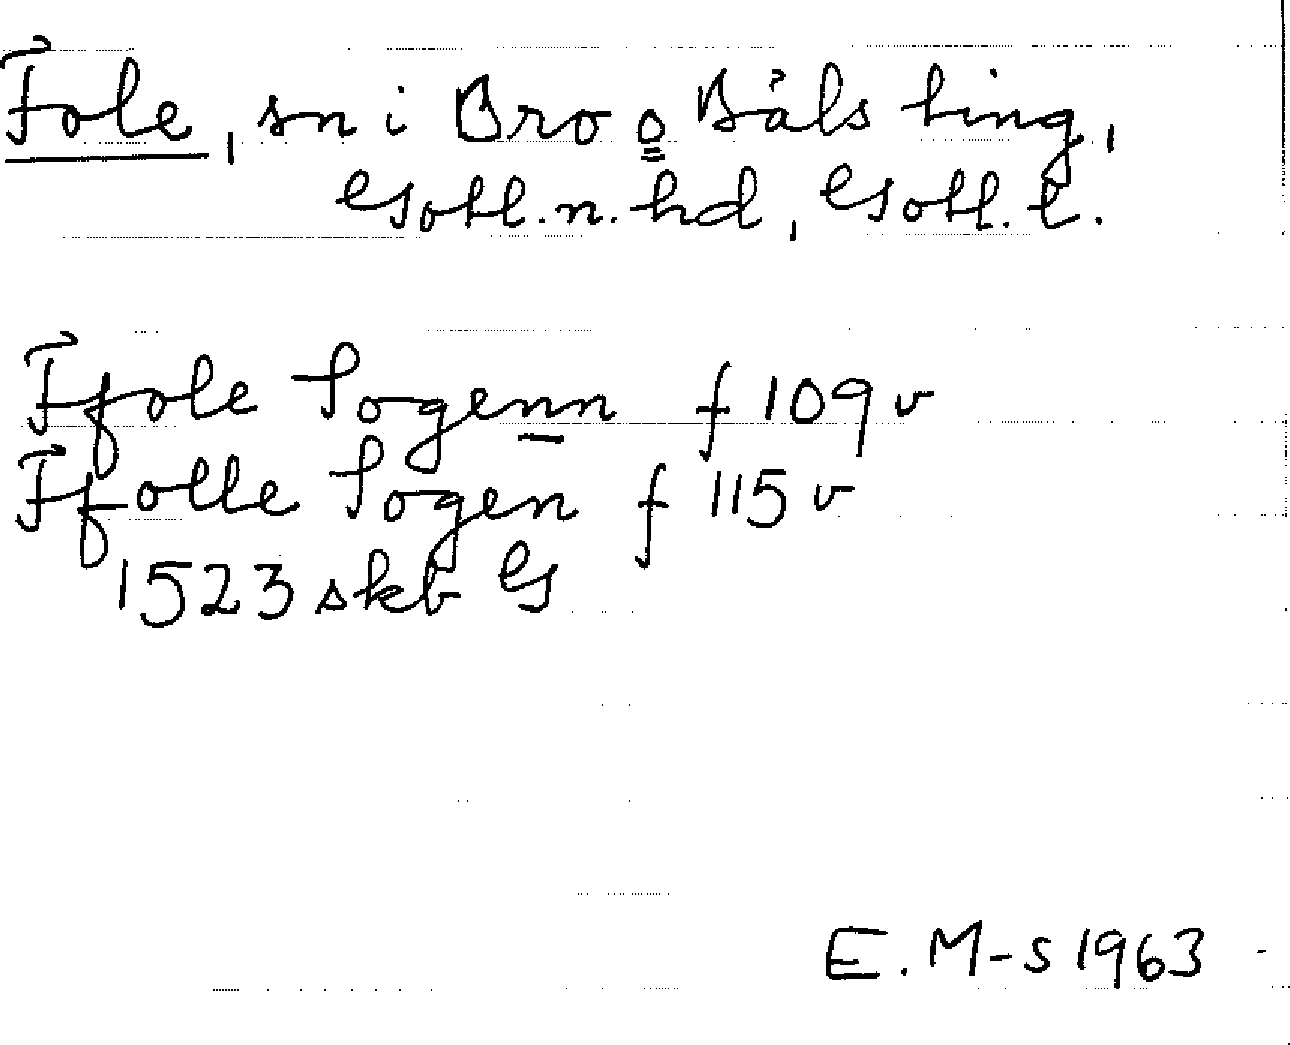 Fole, sn i Bro o Bäls ting,
Gotl. n. hd, Gotl. l.
Ffole Sogenn f 109 v
Ffolle Sogen f 115 v
1523 skb G
E. M-s 1963